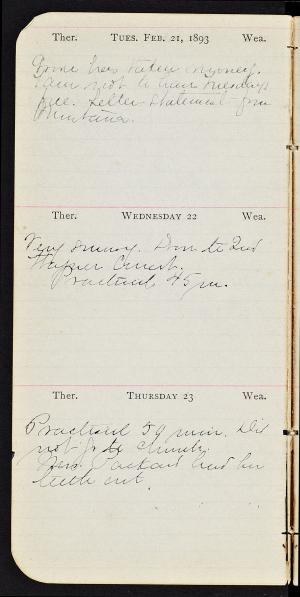 Ther. TUES. FEB. 21, 1893 Wea.
taken money.
not to have Tuesdays
Letter statement from
Montana.
Ther. WEDNESDAY 22 Wea.
Very snowy. to 2nd
Concert.
Practiced 45 m.
Ther. THURSDAY 23 Wea.
Practiced 59 min. Did
not go to church.
Mrs. Packard had her
teeth out.